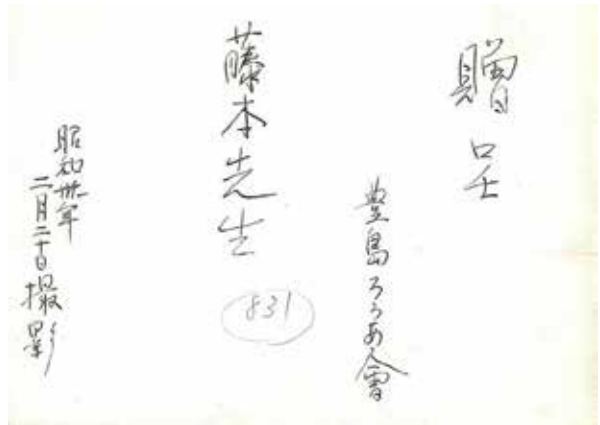 贈呈
豊島ろうあ會
藤本先生
831
昭和卅年
二月二十日撮影